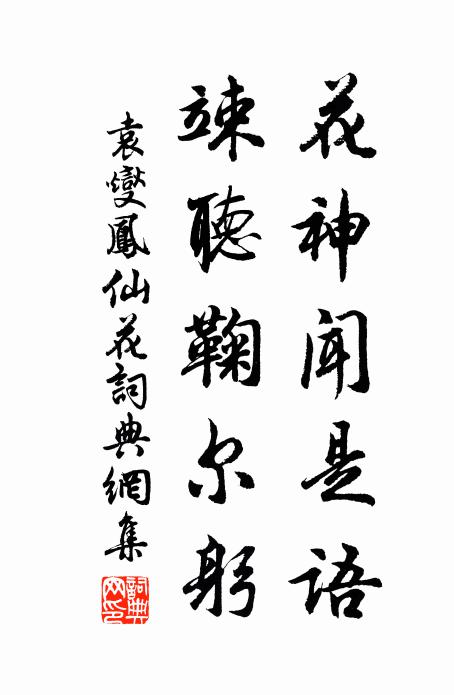 花神闻是語
竦聽鞠尔躬
袁燮鳳仙花詞典網集
詞典網印